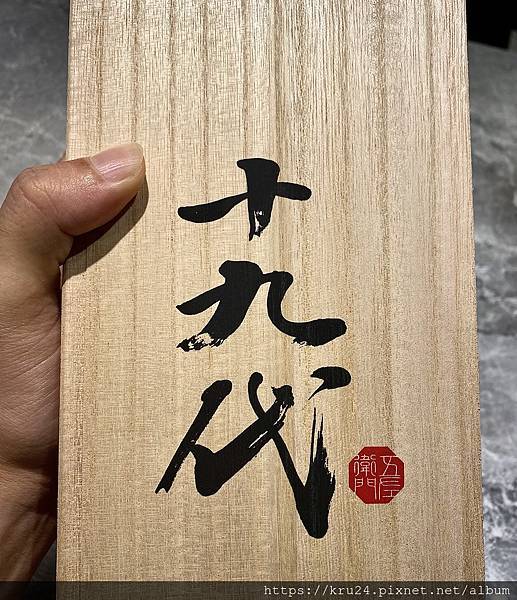 十九代
五屋
衛門
https://kru24.pixnet.net/album